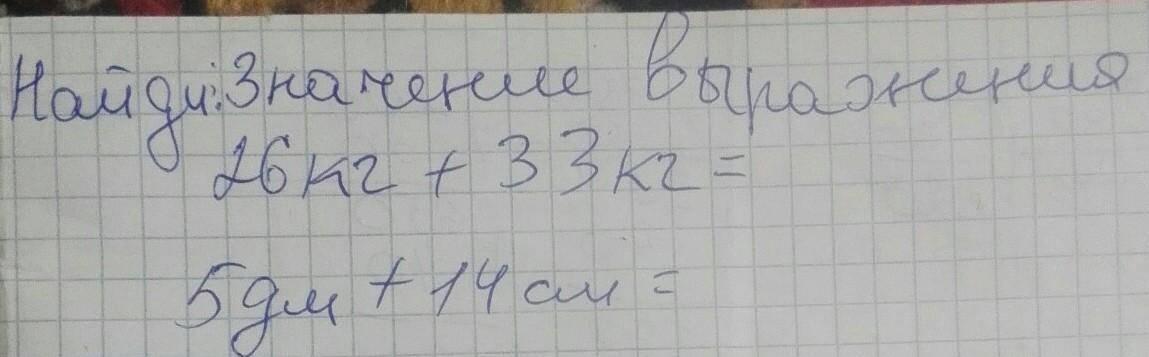 Найди: Значение Выражения
26кг + 33кг =
5дм + 14см =